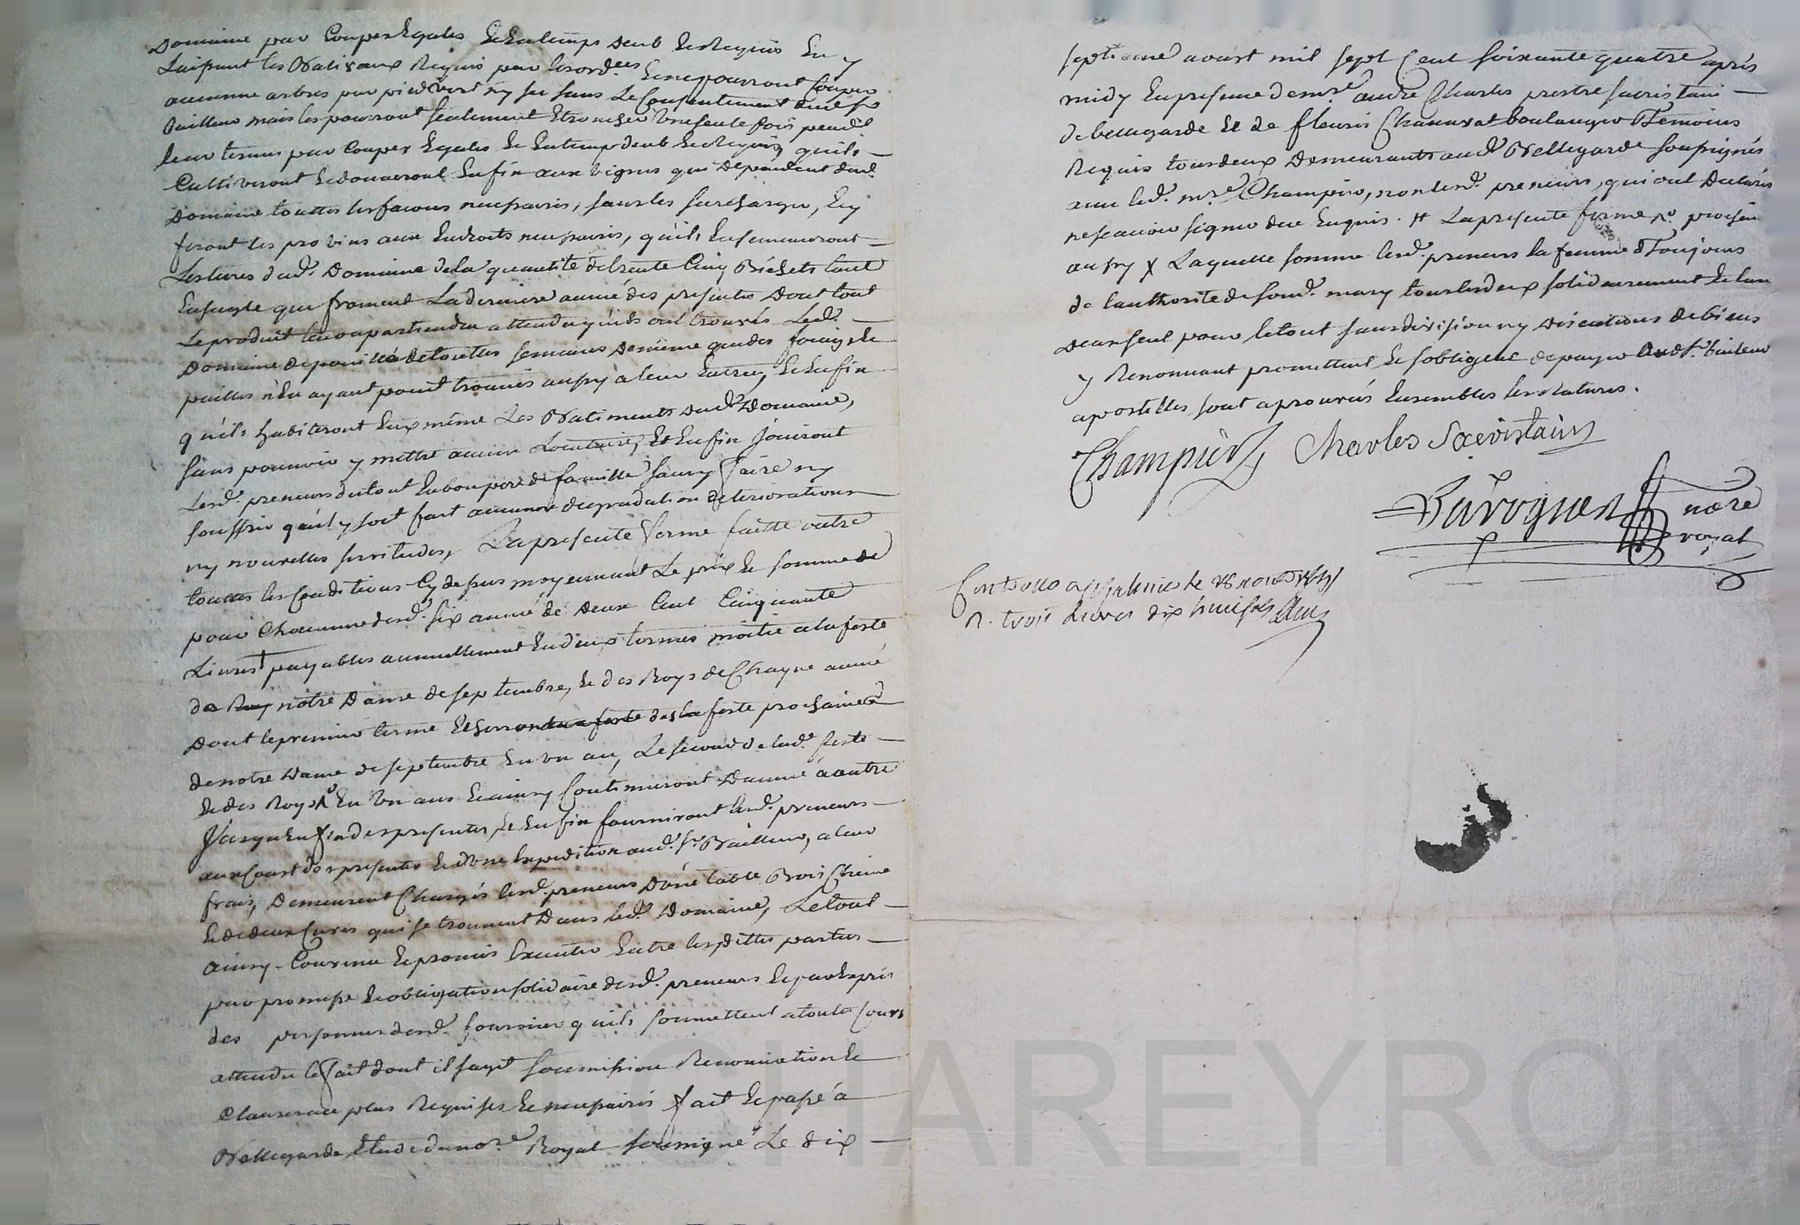 Domaine par Coupes Egales Et En temps deub Et Requis En y
Laissant les Balivaux Requis par les ord.ces Et ne pourront Couper
aucunne arbres par pied vert ny sec sans Le Consentement dud. sr
Bailleur mais les pourront seulement Etroncher Une seule fois pend.t
leur terme par Coupes Egales Et En temps deub Et Requis, qu'ils
Cultiveront Et donneront Enfin aux vignes qui Dependent dud.
Domaine touttes les façons necessaires, sans les surcharger, En y
feront les provins aux Endroits necessaires, qu'ils Ensemenceront
Les terres dud. Domaine de La quantité de trente Cinq Bichets tant
En seigle que froment La derniere année des presentes Dont tout
Le produit leur apartiendra attendu qu'ils ont trouvés Led.
Domaine depouillé de touttes semences De même que des foins Et
pailles n'En ayant point trouvés aussy a leur Entrée, Et Enfin
qu'ils habiteront Eux même Les Batiments dud. Domaine,
sans pouvoir y mettre aucun Locataire, Et Enfin Jouiront
Lesd. preneurs du tout En bon pere de famille sans y faire ny
souffrir qu'il y soit fait aucunne degradation deteriorations
ny nouvelles servitudes, La presente ferme faitte outre
touttes les Conditions Cy dessus moyennant Le prix Et somme de
pour Chacunne desd. six année de Deux Cent Cinquante
Livres payables annuellement En deux termes moitié a la feste
de notre Dame de septembre, Et des Roys de Chaque année
Dont le premier terme Echerra a la feste prochaine
de notre Dame de septembre En un an, Le second de lad. feste
Et des Roys En Un ans Et ainsy Continueront D'année à autre
Jusqu'En fin des presentes, Et Enfin fourniront lesd. preneurs
aux Court des presentes Et d'Une Expedition aud. sr Bailleur, a leur
frais, Demeurent Chargés lesd. preneurs D'une table Bois Chêne
Et de deux Cuves qui se trouvent Dans led. Domaine, Le tout
ainsy Convenu Et promis Executer Entre les dittes parties
par promesse Et obligation solidaire desd. preneurs Et par Exprès
des personnes desd. fournier qu'ils soumettent a toutes Cours
attendu le fait dont il sagit soumission Renonciation Et
Clauses au plus Requises Et necessaires fait Et passé à
Bellegarde Etude du no.re Royal soussigné Le dix
septieme avant mil sept Cent soixante quatre après
midy En presence de m.re andré Charles prestre sacristain
de bellegarde Et de fleuris Chauvat boulanger Temoins
Requis tous deux Demeurants aud. Bellegarde soussignés
avec led. m.re Champier, non lesd. preneurs, qui ont Declarés
ne scavoir signer de ce Enquis. La presente ferme
aussy x Laquelle somme lesd. preneurs la femme Toujours
de l'authorité de sond. mary tous lesd. deux solidairement Et l'un
deux seul pour le tout sans division ny discutions de biens
y Renonçant promettent Et s'obligent de payer aud. sr bailleur
apostilles sont aprouvés Ensembles les ratures.
Champier Charles Sacristain
nore
royal
Controllé a Le 28
R. trois Livres dix huit sols
CHAREYRON